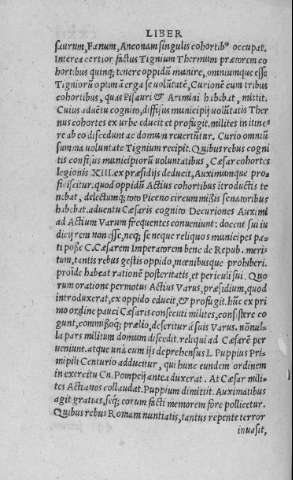 LIBER
saurum, Fanum, Anconam singulis cohortibꝰ occupat.
Interea certior factus Tignium Thermum prætorem co
hortibus quinq; tenere oppidũ munire, omniumque esse
Tigniorũ optimã erga se volũtatẽ, Curionẽ cum tribus
cohortibus, quas Pisauri & Arimini habebat, mittit.
Cuius aduẽtu cognito, diffisus municipij volũtati Ther
nus cohortes ex vrbe educit et profugit. milites in itine
re ab eo discedunt ac domum reuertũtur. Curio omniũ
summa voluntate Tignium recipit. Quibus rebus cogni
tis confisus municipiorũ voluntatibus, Cæsar cohortes
legionis XIII. ex præsidijs deducit, Auximumque pro
ficiscitur. quod oppidũ Actius cohortibus ĩtroductis te
nebat, delectumq; toto Piceno circummißis senatoribus
habebat. aduentu Cæsaris cognito Decuriones Auximi
ad Actium Varum frequentes conueniunt: docent sui iu
dicij rem non esse, neq; se neque reliquos municipes pa
ti poße C. Cæsarem Imperatorem bene de Repub. meri
tum, tantis rebus gestis oppido, mœnibusque prohiberi.
proĩde habeat rationẽ posteritatis, et periculi sui. Quo
rum oratione permotus Actius Varus, præsidium, quod
introduxerat, ex oppido educit, & profugit. hũc ex pri
mo ordine pauci Cæsaris consecuti milites, consistere co
gunt, commißoq; prælio, deseritur à suis Varus. nõnul
la pars militum domum discedit. reliqui ad Cæsarẽ per
ueniunt. atque unà cum ijs deprehensus L. Puppius Pri
mipili Centurio adducitur, qui hunc eundem ordinem
in exercitu Cn. Pompeij antea duxerat. At Cæsar mili
tes Actianos collaudat. Puppium dimittit. Auximatibus
agit gratias, seq; eorum facti memorem fore pollicetur.
Quibus rebus Romam nuntiatis, tantus repente terror
inuasit,